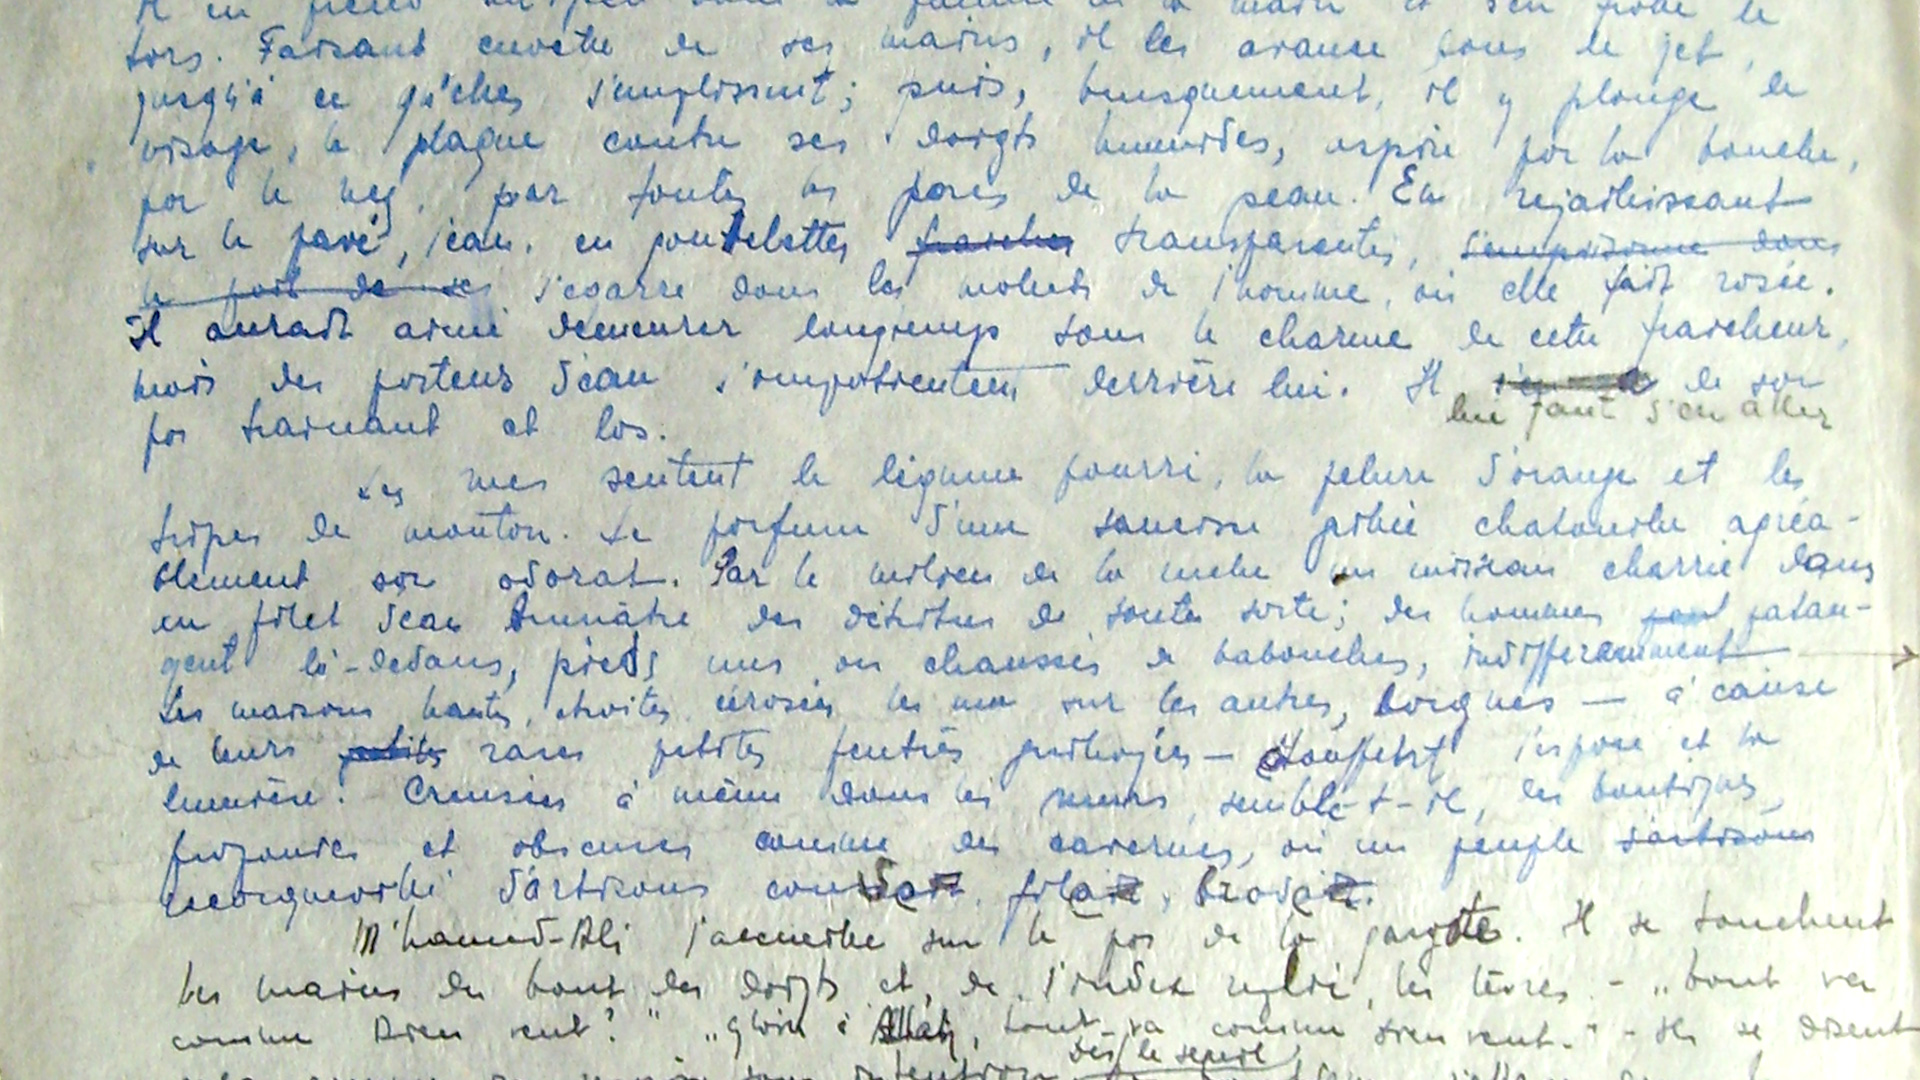 tors. Faisant cuvette de ses mains, il les avance sous le jet,
jusqu'à ce qu'elles s'emplissent; puis, brusquement, il y plonge le
visage, le plaque contre ses doigts humides, aspire par la bouche,
par le nez, par toutes les pores de la peau. En rejaillissant
sur le pavé, l'eau, en gouttelettes fraiches transparentes, s'emprisonne dans
le poil de ses s'egarre dans les mollets de l'homme, où elle fait rosée.
Il aurait aimé demeurer longtemps sous le charme de cette fraicheur,
mais des porteurs d'eau s'impatientent derrière lui. Il de son
lui faut s'en aller
pas trainant et las.
Les rues sentent le légume pourri, la pelure d'orange et les
tripes de mouton. Le parfum d'une saucisse grillée chatouille agréa-
blement son odorat. Par le milieu de la ruelle un ruisseau charrie dans
un filet d'eau brunâtre des détritus de toute sorte; des hommes patau-
gent là-dedans, pieds nus ou chaussés de babouches, indifféremment
Les maisons hautes, étroites, écrasées les unes sur les autres, borgnes — à cause
de leurs petites rares petites fenêtres grillagées — étouffent l'espace et la
lumière. Creusées à même dans les murs, semble-t-il, les boutiques,
profondes et obscures comme des cavernes, où un peuple d'artisans
recroquevillé d'artisans
M'hamed-Ali l'accueille sur le pas de la gargote. Il se touchent
les mains du bout des doigts et, de l'index replié, les lèvres. - „Tout va
comme Dieu veut?" „Gloire à Allah, tout va comme Dieu veut." - Ils se disent
dès le seuil